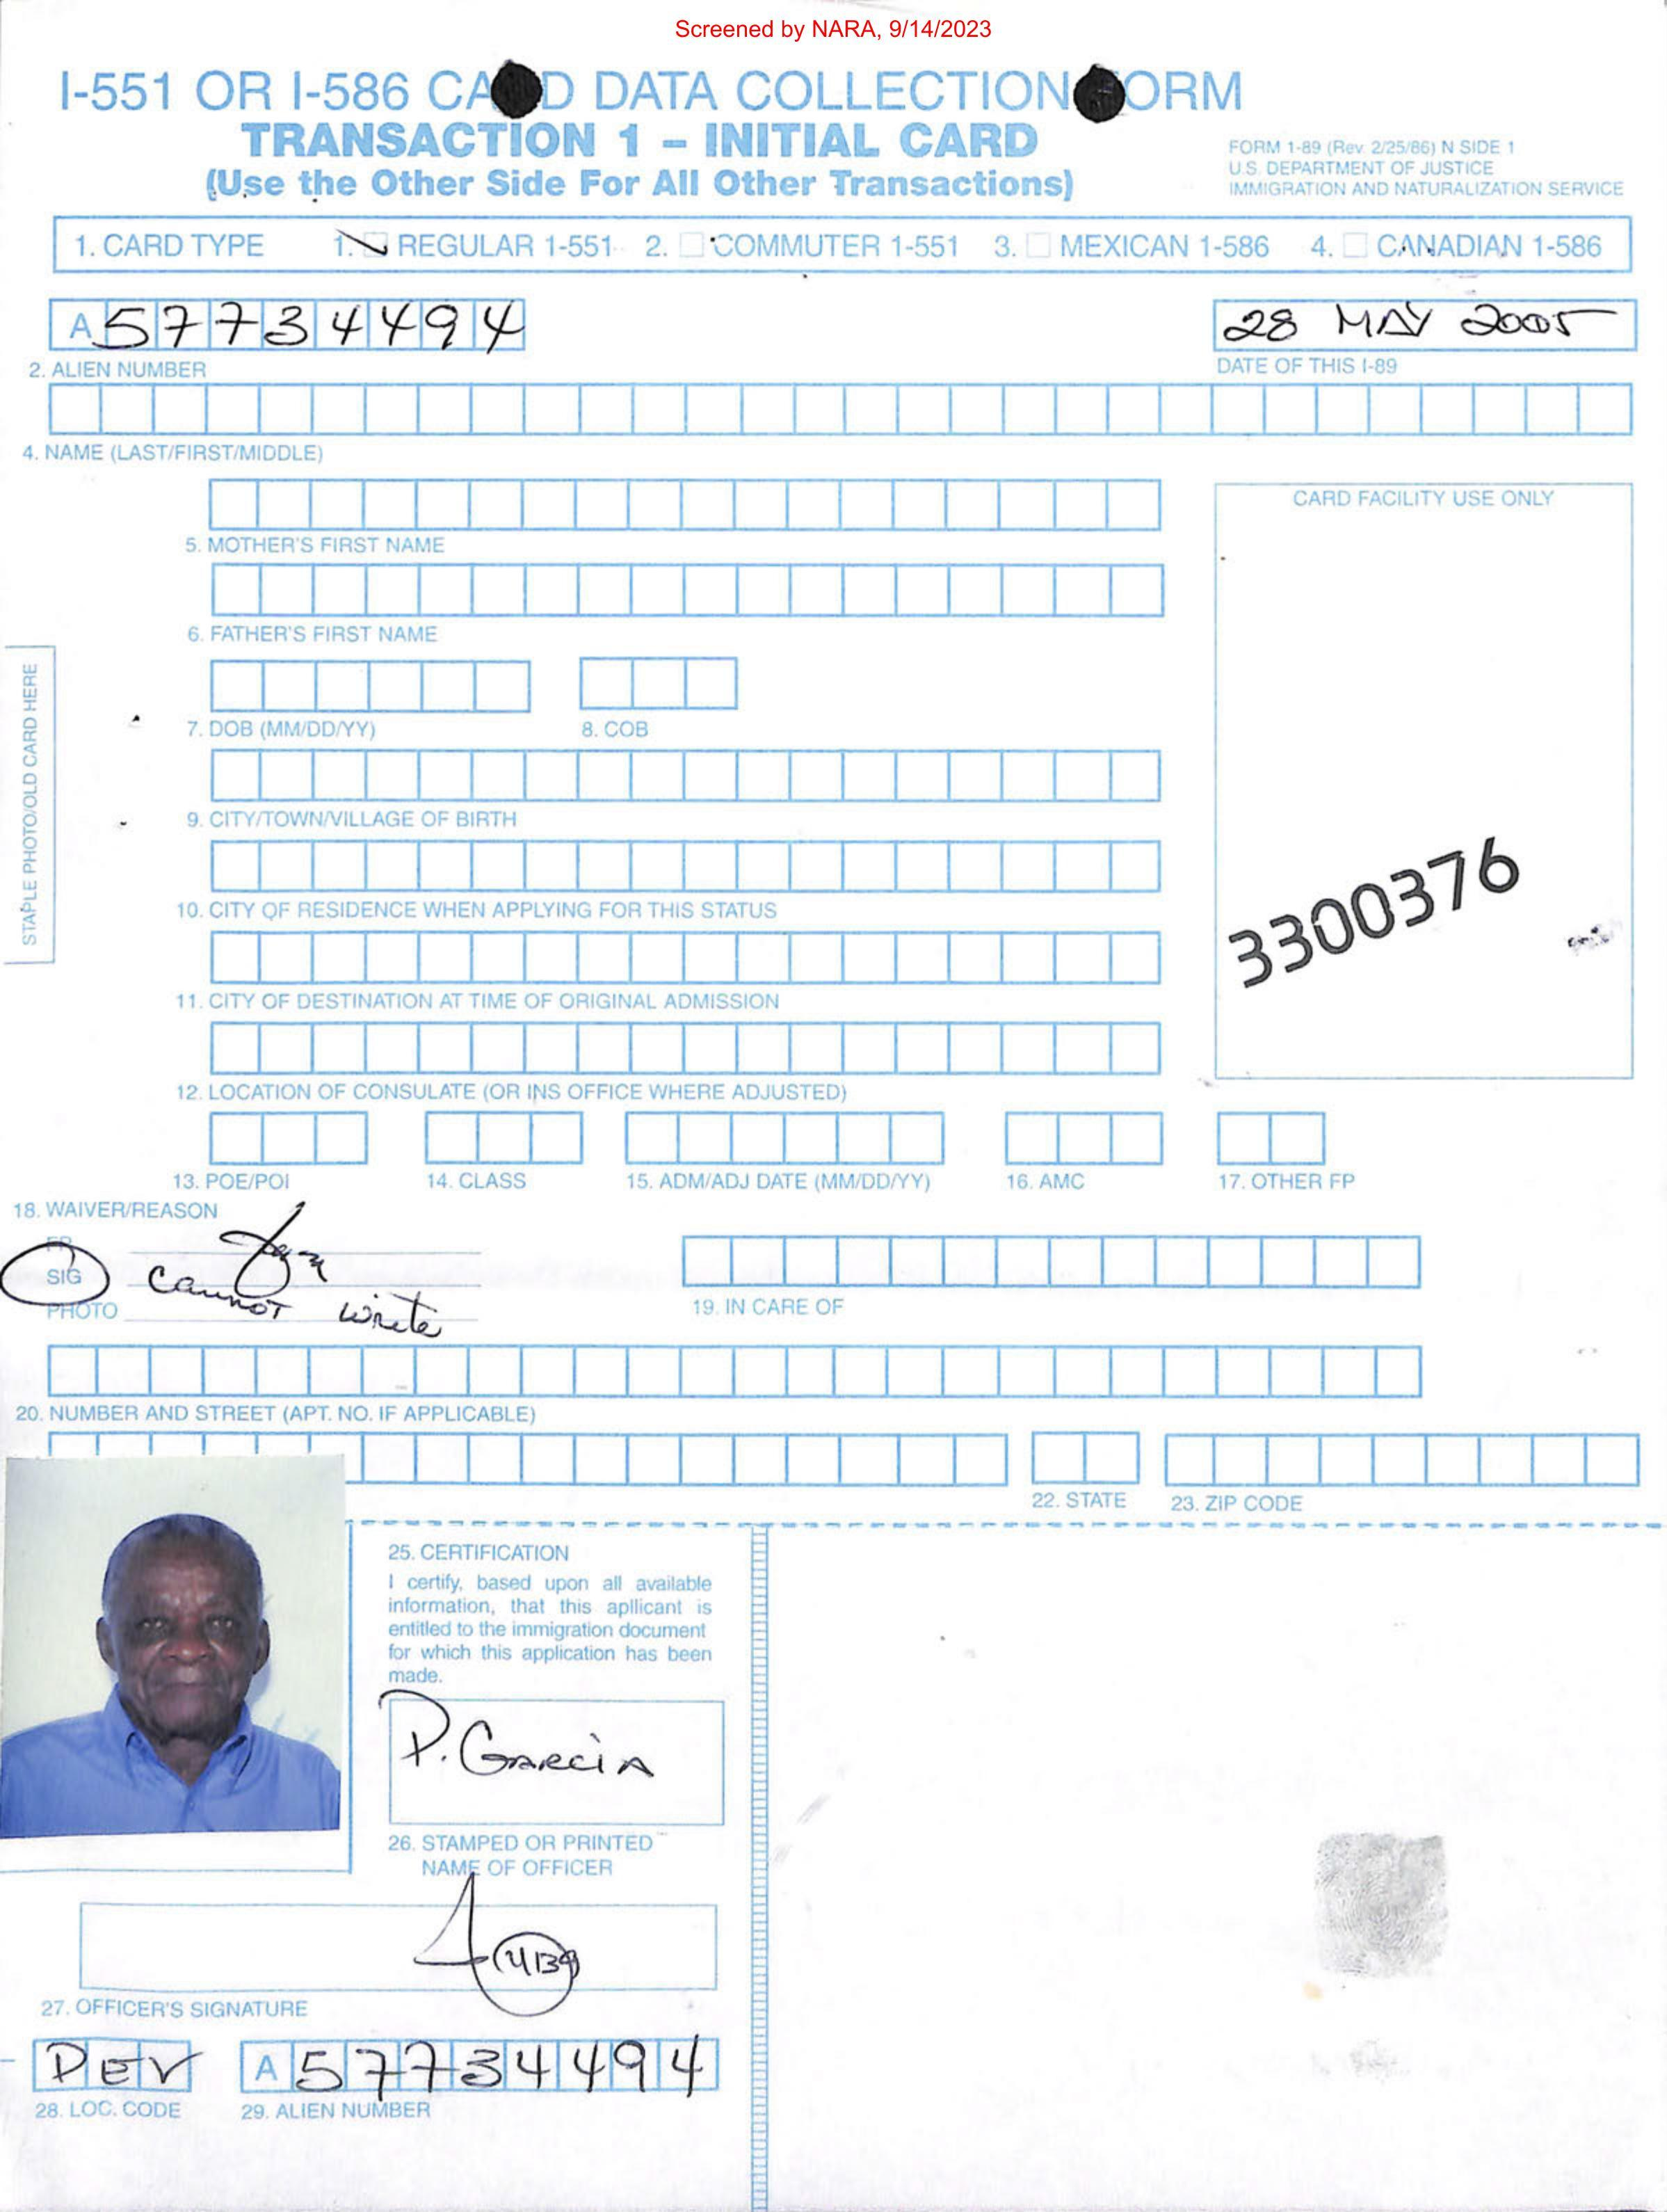 Screened by NARA, 9/14/2023
I-551 OR I-586 CA D DATA COLLECTION ORM
TRANSACTION 1 – INITIAL CARD
(Use the Other Side For All Other Transactions)
FORM 1-89 (Rev. 2/25/86) N SIDE 1
U.S. DEPARTMENT OF JUSTICE
IMMIGRATION AND NATURALIZATION SERVICE
1. CARD TYPE 1. REGULAR 1-551 2. COMMUTER 1-551 3. MEXICAN 1-586 4. CANADIAN 1-586
A 57734494
28 MAY 2005
2. ALIEN NUMBER
DATE OF THIS I-89
4. NAME (LAST/FIRST/MIDDLE)
CARD FACILITY USE ONLY
5. MOTHER'S FIRST NAME
6. FATHER'S FIRST NAME
STAPLE PHOTO/OLD CARD HERE
7. DOB (MM/DD/YY) 8. COB
9. CITY/TOWN/VILLAGE OF BIRTH
3300376
10. CITY OF RESIDENCE WHEN APPLYING FOR THIS STATUS
11. CITY OF DESTINATION AT TIME OF ORIGINAL ADMISSION
12. LOCATION OF CONSULATE (OR INS OFFICE WHERE ADJUSTED)
13. POE/POI 14. CLASS 15. ADM/ADJ DATE (MM/DD/YY) 16. AMC 17. OTHER FP
18. WAIVER/REASON
FP
SIG cannot
PHOTO write
19. IN CARE OF
20. NUMBER AND STREET (APT. NO. IF APPLICABLE)
22. STATE 23. ZIP CODE
25. CERTIFICATION
I certify, based upon all available
information, that this apllicant is
entitled to the immigration document
for which this application has been
made.
P. GARCIA
26. STAMPED OR PRINTED
NAME OF OFFICER
27. OFFICER'S SIGNATURE
A 57734494
28. LOC. CODE 29. ALIEN NUMBER